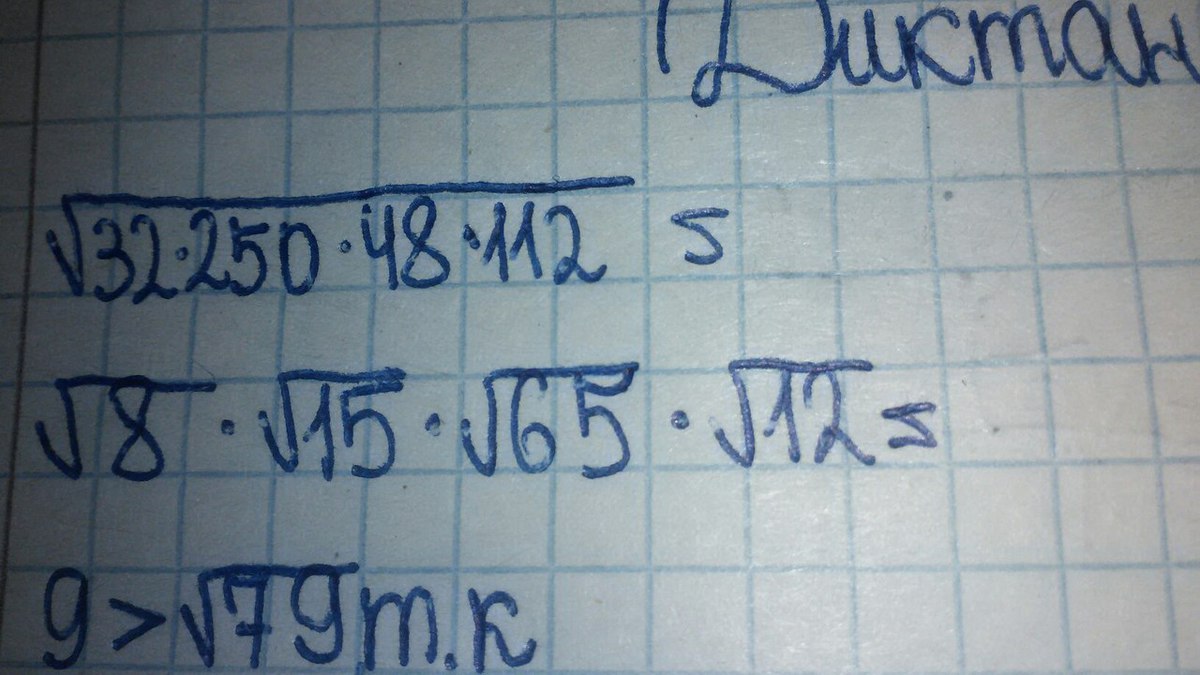 Диктан
√32·250·48·112 =
√8 · √15 · √65 · √12 =
9 > √79 т.к